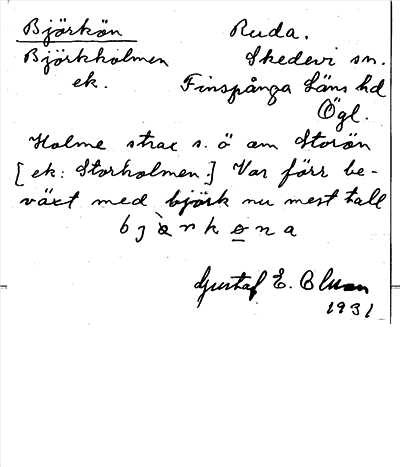 Björkön Ruda.
Björkholmen Skedevi sn.
ek. Finspånga Läns hd
Ögl.
Holme strax s. ö om Storön
[ek: Storholmen.] Var förr be-
växt med björk nu mest tall
Gustaf E. Bluom
1931